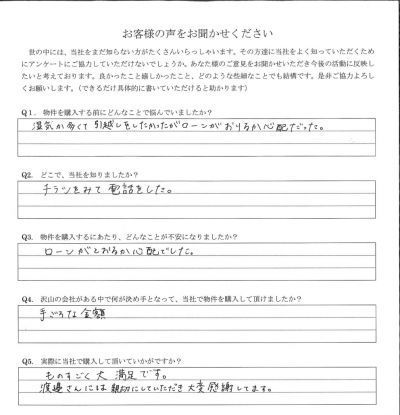 お客様の声をお聞かせください
世の中には、当社をまだ知らない方がたくさんいらっしゃいます。その方達に当社をよく知っていただくため
にアンケートにご協力していただけないでしょうか。あなた様のご意見をお聞かせいただき今後の活動に反映し
たいと考えております。良かったこと嬉しかったこと、どのような些細なことでも結構です。是非ご協力よろし
くお願いします。（できるだけ具体的に書いていただけると助かります）
Q1. 物件を購入する前にどんなことで悩んでいましたか？
湿気が多くて引越しをしたかったがローンがおりるか心配だった。
Q2. どこで、当社を知りましたか？
チラシをみて電話をした。
Q3. 物件を購入するにあたり、どんなことが不安になりましたか？
ローンがとおるか心配でした。
Q4. 沢山の会社がある中で何が決め手となって、当社で物件を購入して頂けましたか？
手ごろな金額
Q5. 実際に当社で購入して頂いていかがですか？
ものすごく大満足です。
渡邉さんには親切にしていただき大変感謝してます。